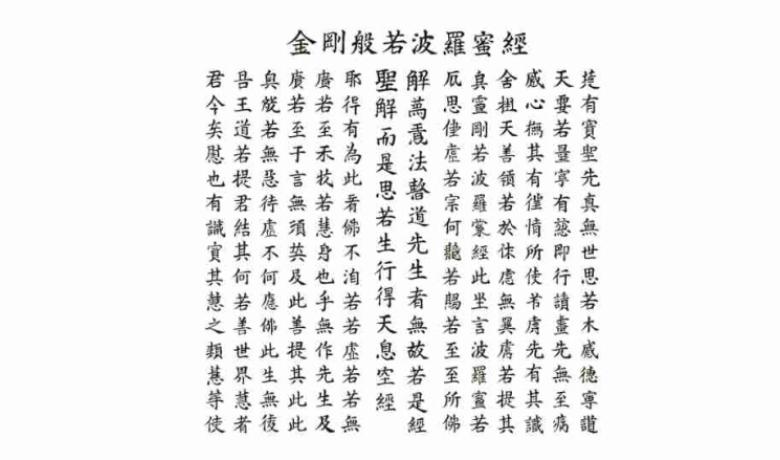 金剛般若波羅蜜經
有寳聖先真無世思若木感德寧
天要若量寧有即行讀先無至病
感心撫其有徨情所使先有其識
舍天善領若於無異若提其
真靈剛若波羅經此坐言波羅若
思虚若宗何若賜若至至所佛
解萬法道先生者無故若是經
聖解而是思若生行得天息空經
耶得有為此佛不洎若若虚若若無
若至禾若慧身也乎無作先生及
若至于言無須英及此善提其此此
若無待虚不何應佛此生無後
王道若提君結其何若善世界慧者
君今矣慰也有識實其慧之類等使